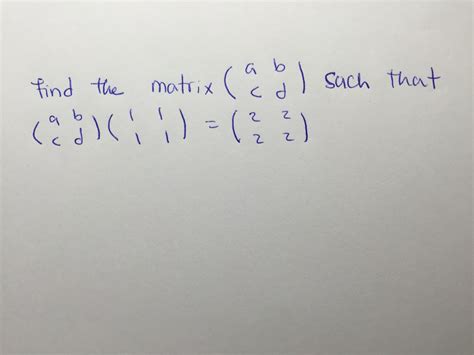 find the matrix (a b
c d) such that
(a b
c d)(1 1
1 1) = (2 2
2 2)